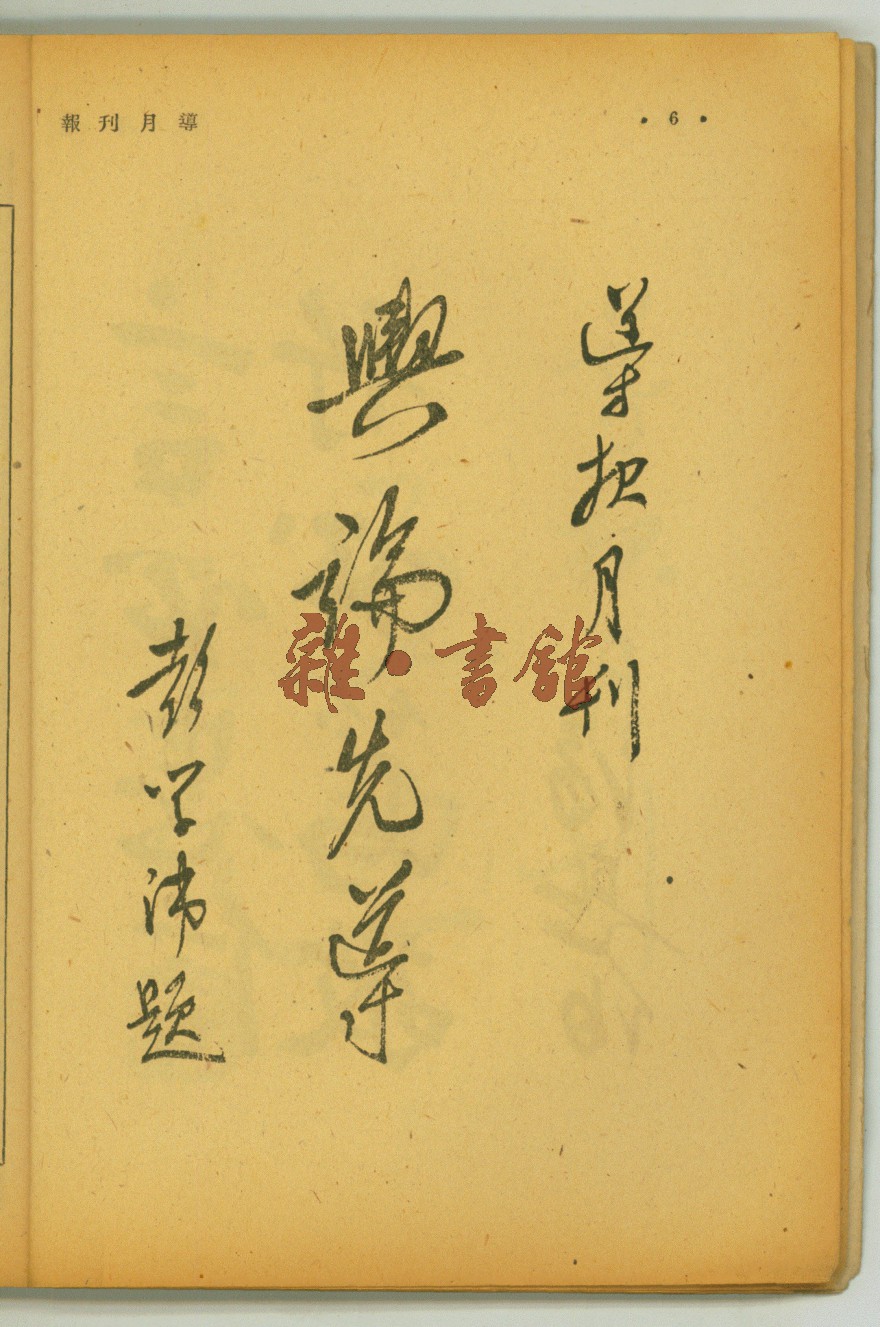 報刊月導
• 6 •
導報月刊
輿論先導
彭学沛題
雜·書館